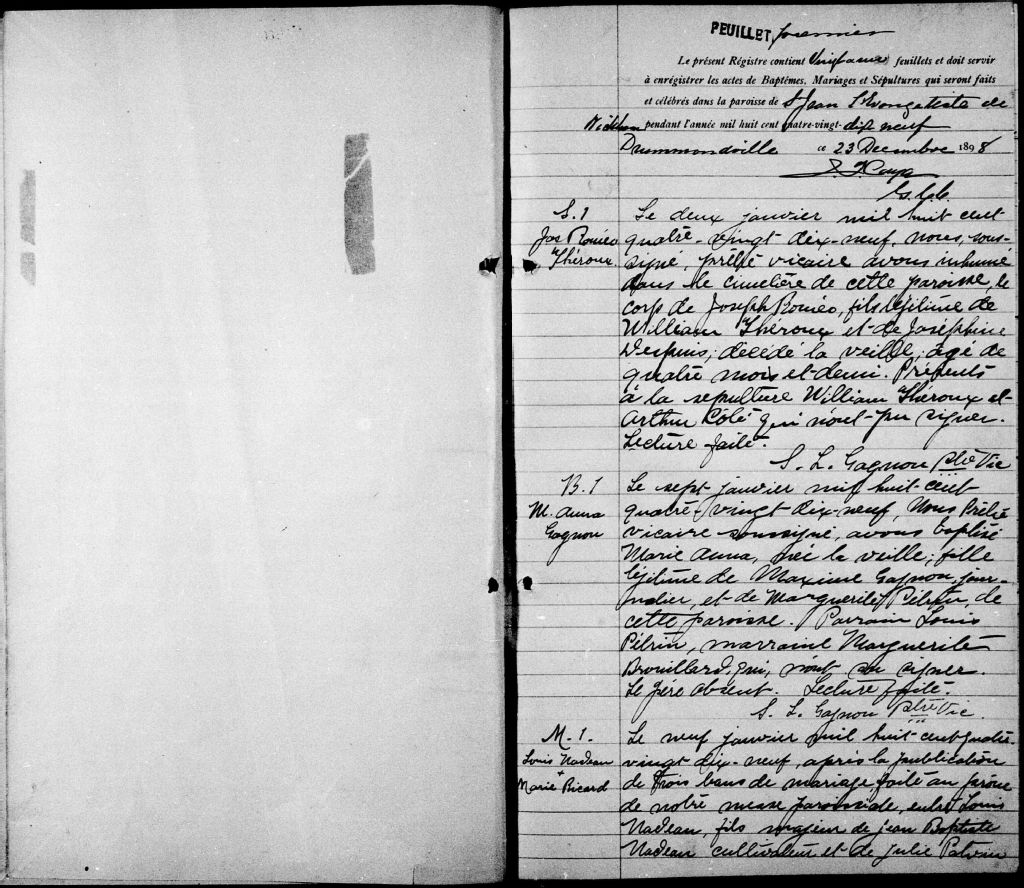 FEUILLET premier
Le présent Régistre contient Vingt feuillets et doit servir
à enrégistrer les actes de Baptêmes, Mariages et Sépultures qui seront faits
et célébrés dans la paroisse de St Jean L'Evangeliste de
Wickham pendant l'année mil huit cent quatre-vingt-dix neuf
Drummondville ce 23 Decembre 1898
S. 1
Jos Roméo
Théroux
Le deux janvier mil huit cent
quatre-vingt dix-neuf, nous, sous-
signé, prêtre vicaire avons inhumé
dans le cimetière de cette paroisse, le
corp de Joseph Roméo, fils légitime de
William Théroux et de Joséphine
Despins, décédé la veille, agé de
quatre mois et demi. Présents
à la sepulture William Théroux et
Arthur Côté qui n'ont pu signer.
Lecture faite.
S. L. Gagnon Ptre Vic
B. 1
M. Anna
Gagnon
Le sept janvier mil huit cent
quatre-vingt dix-neuf, Nous Prêtre
vicaire soussigné, avons baptisé
Marie Anna, née la veille, fille
légitime de Maxime Gagnon, jour-
nalier, et de Marguerite Pétrin, de
cette paroisse. Parrain Louis
Pétrin, marraine Marguerite
Brouillard, qui, n'ont su signer.
Le père absent. Lecture faite.
S. L. Gagnon Ptre Vic.
M. 1.
Louis Nadeau
+
Marie Ricard
Le neuf janvier mil huit-cent quatre-
vingt dix-neuf, après la publication
de trois bans de mariage faite au prône
de notre messe paroissiale, entre Louis
Nadeau, fils majeur de jean Baptiste
Nadeau cultivateur et de Julie Potvin